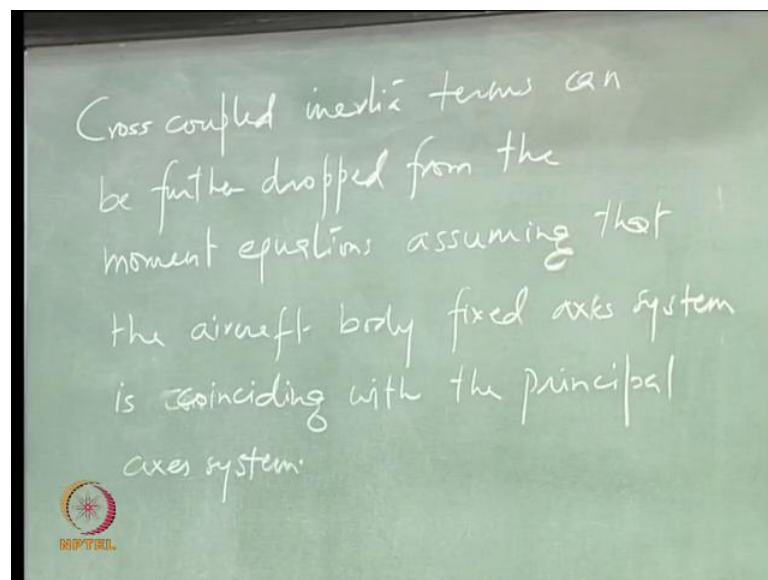 Cross coupled inertia terms can
be further dropped from the
moment equations assuming that
the aircraft body fixed axes system
is coinciding with the principal
axes system.
NPTEL